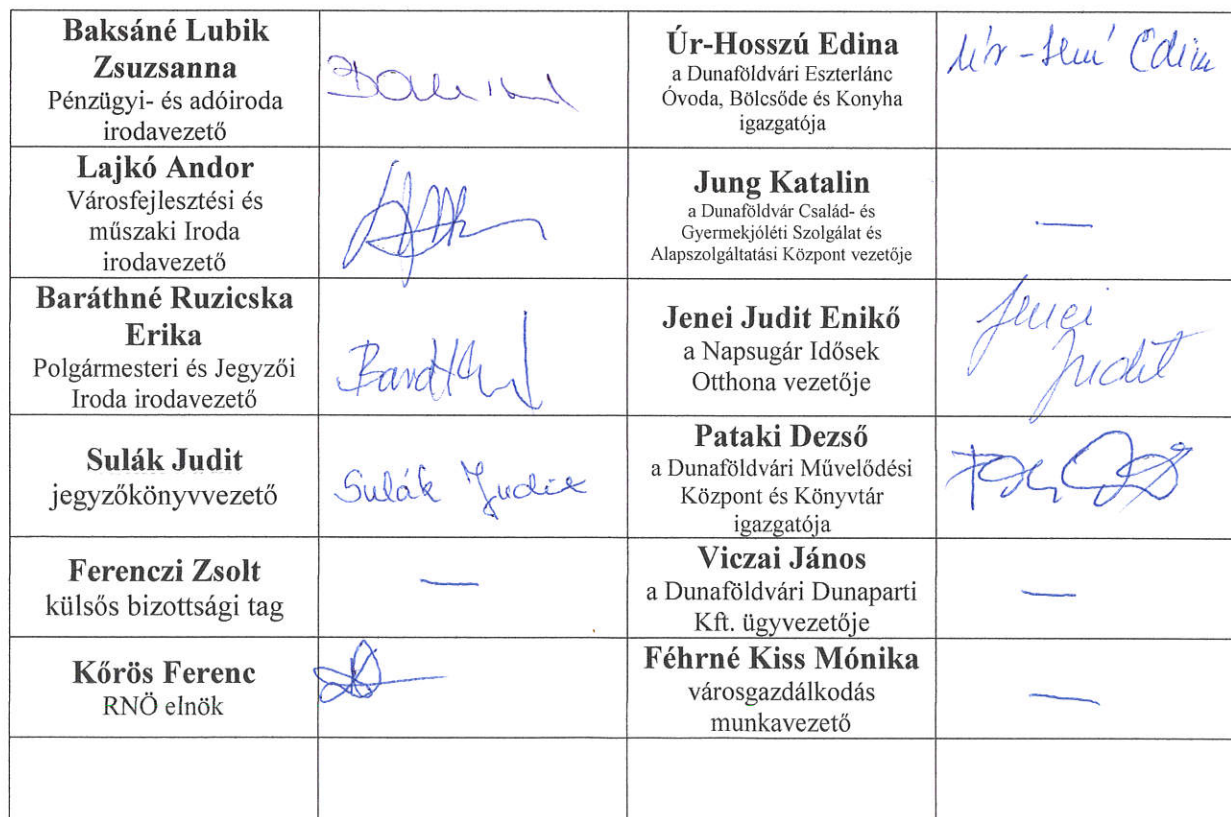 Baksáné Lubik
Zsuzsanna
Pénzügyi- és adóiroda
irodavezető
Úr-Hosszú Edina
a Dunaföldvári Eszterlánc
Óvoda, Bölcsőde és Konyha
igazgatója
Lajkó Andor
Városfejlesztési és
műszaki Iroda
irodavezető
Jung Katalin
a Dunaföldvár Család- és
Gyermekjóléti Szolgálat és
Alapszolgáltatási Központ vezetője
—
Baráthné Ruzicska
Erika
Polgármesteri és Jegyzői
Iroda irodavezető
Jenei Judit Enikő
a Napsugár Idősek
Otthona vezetője
Jenei
Judit
Sulák Judit
jegyzőkönyvvezető
Sulák Judit
Pataki Dezső
a Dunaföldvári Művelődési
Központ és Könyvtár
igazgatója
Ferenczi Zsolt
külsős bizottsági tag
—
Viczai János
a Dunaföldvári Dunaparti
Kft. ügyvezetője
—
Kőrös Ferenc
RNÖ elnök
Féhrné Kiss Mónika
városgazdálkodás
munkavezető
—